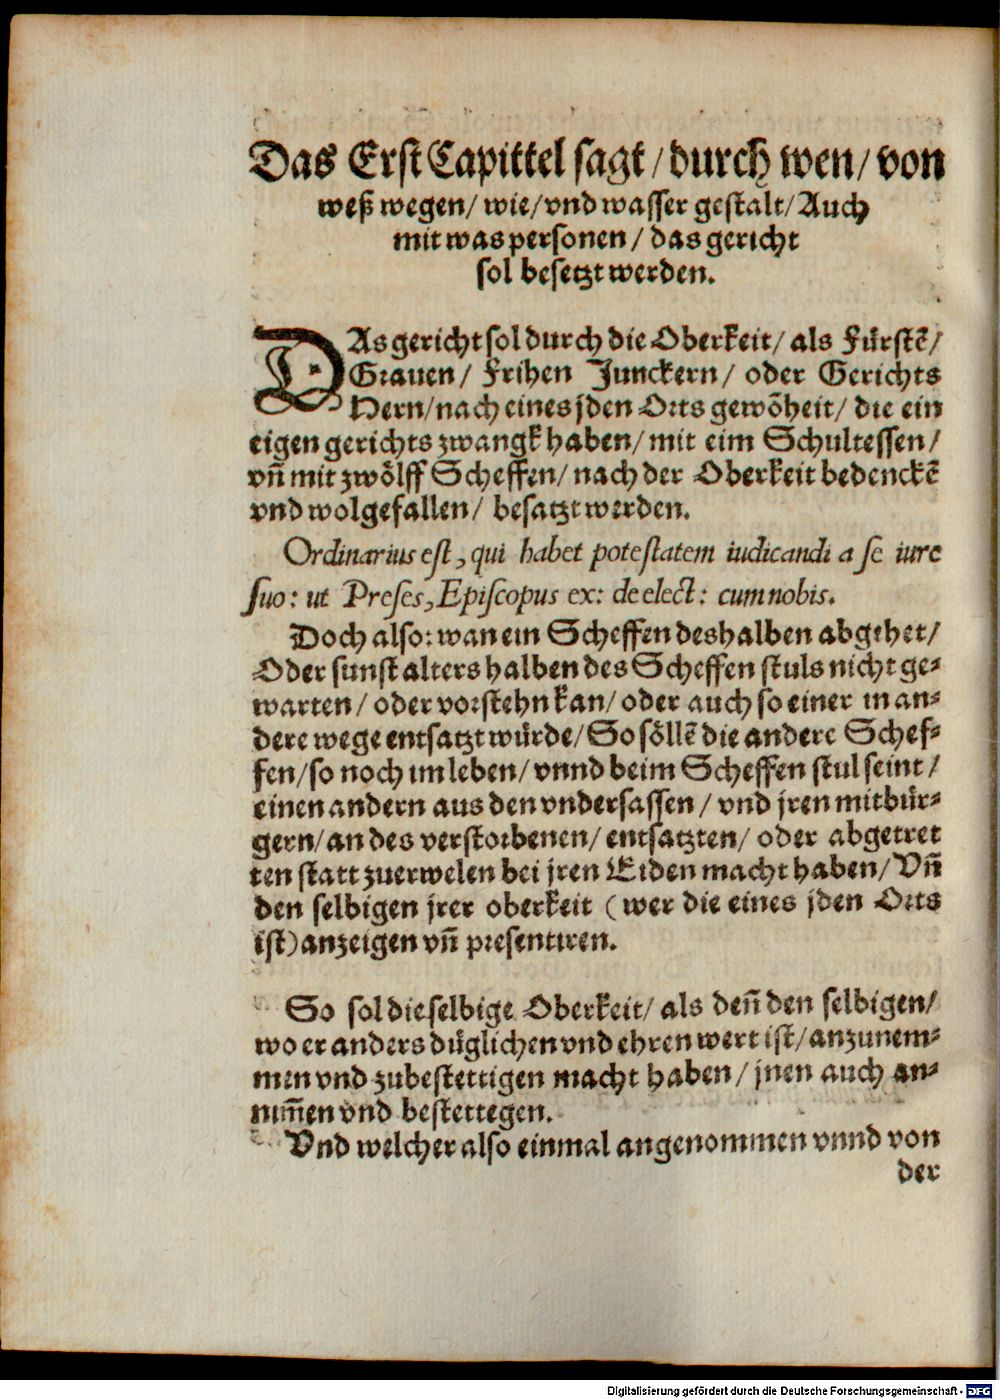 Das Erst Capittel sagt/durch wen/von
weß wegen/ wie/vnd wasser gestalt/Auch
mit was personen/das gericht
sol besetzt werden.
DAs gericht sol durch die Oberkeit/ als Fürstẽ/
Grauen/ Frihen Junckern/ oder Gerichts
Hern/nach eines jden Orts gewõheit/ die ein
eigen gerichts zwangk haben/ mit eim Schultessen/
vñ mit zwölff Scheffen/ nach der Oberkeit bedenckẽ
vnd wolgefallen/ besatzt werden.
Ordinarius est, qui habet potestatem iudicandi a se iure
suo: ut Preses, Episcopus ex: de elect: cum nobis.
Doch also: wan ein Scheffen deshalben abgehet/
Oder sunst alters halben des Scheffen stuls nicht ge-
warten/ oder vorstehn kan/ oder auch so einer in an-
dere wege entsatzt würde/ So söllẽ die andere Schef-
fen/so noch im leben/ vnnd beim Scheffen stul seint/
einen andern aus den vndersassen/ vnd jren mitbür-
gern/an des verstorbenen/ entsatzten/ oder abgetret
ten statt zuerwelen bei jren Eiden macht haben/ Vñ
den selbigen jrer oberkeit (wer die eines jden Orts
ist) anzeigen vñ presentiren.
So sol dieselbige Oberkeit/ als deñ den selbigen/
wo er anders düglichen vnd ehren wert ist/anzunem-
men vnd zubestettigen macht haben/ jnen auch an-
nim̃en vnd bestettegen.
Vnd welcher also einmal angenommen vnnd von
der
Digitalisierung gefördert durch die Deutsche Forschungsgemeinschaft - DFG